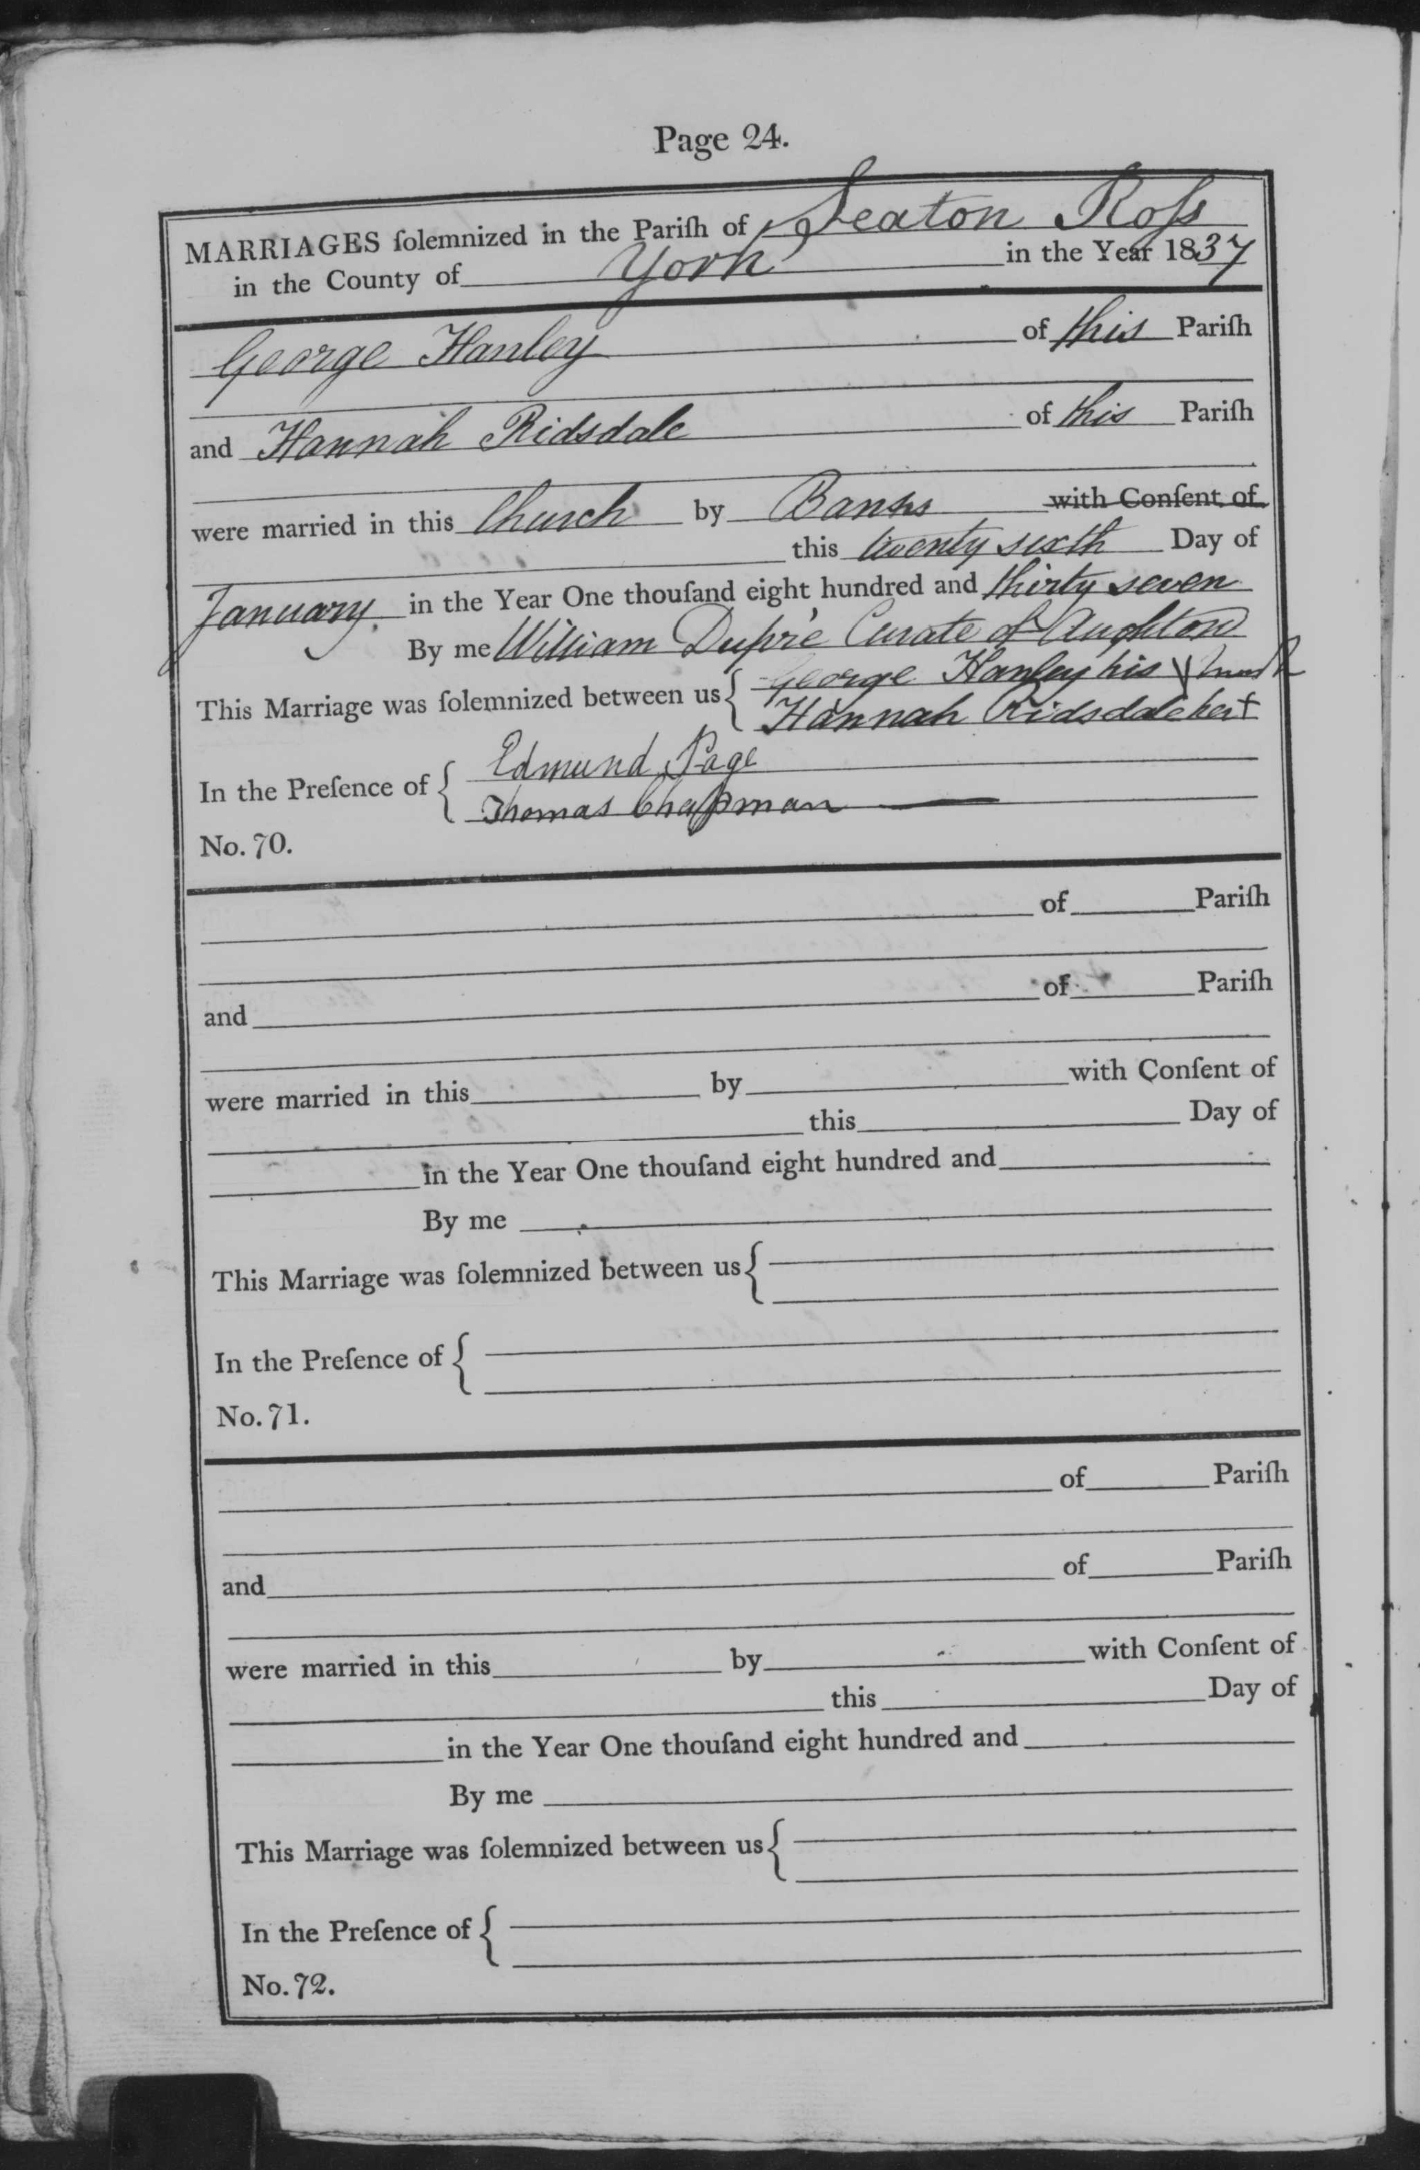 Page 24.
MARRIAGES ſolemnized in the Pariſh of Seaton Roſs
in the County of York in the Year 1837
George Hanley of this Pariſh
and Hannah Ridsdale of this Pariſh
were married in this Church by Banns with Conſent of
this twenty sixth Day of
January in the Year One thouſand eight hundred and thirty seven
By me William Dupré Curate of Aughton
This Marriage was ſolemnized between us { George Hanley his X mark
Hannah Ridsdale her +
In the Preſence of { Edmund Page
Thomas Chapman
No. 70.
of Pariſh
and of Pariſh
were married in this by with Conſent of
this Day of
in the Year One thouſand eight hundred and
By me
This Marriage was ſolemnized between us {
In the Preſence of {
No. 71.
of Pariſh
and of Pariſh
were married in this by with Conſent of
this Day of
in the Year One thouſand eight hundred and
By me
This Marriage was ſolemnized between us {
In the Preſence of {
No. 72.